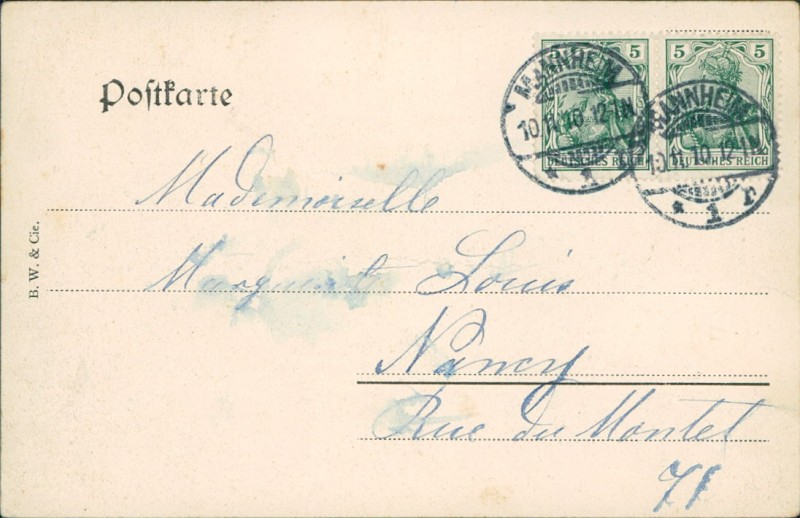 Postkarte
5 5 5
MANNHEIM
10.11.10. 12-1N.
* 1 r
MANNHEIM
10.11.10. 12-1N.
* 1 r
DEUTSCHES REICH
DEUTSCHES REICH
Mademoiselle
Marguerite Louis
Nancy
Rue du Montet
71
B. W. & Cie.